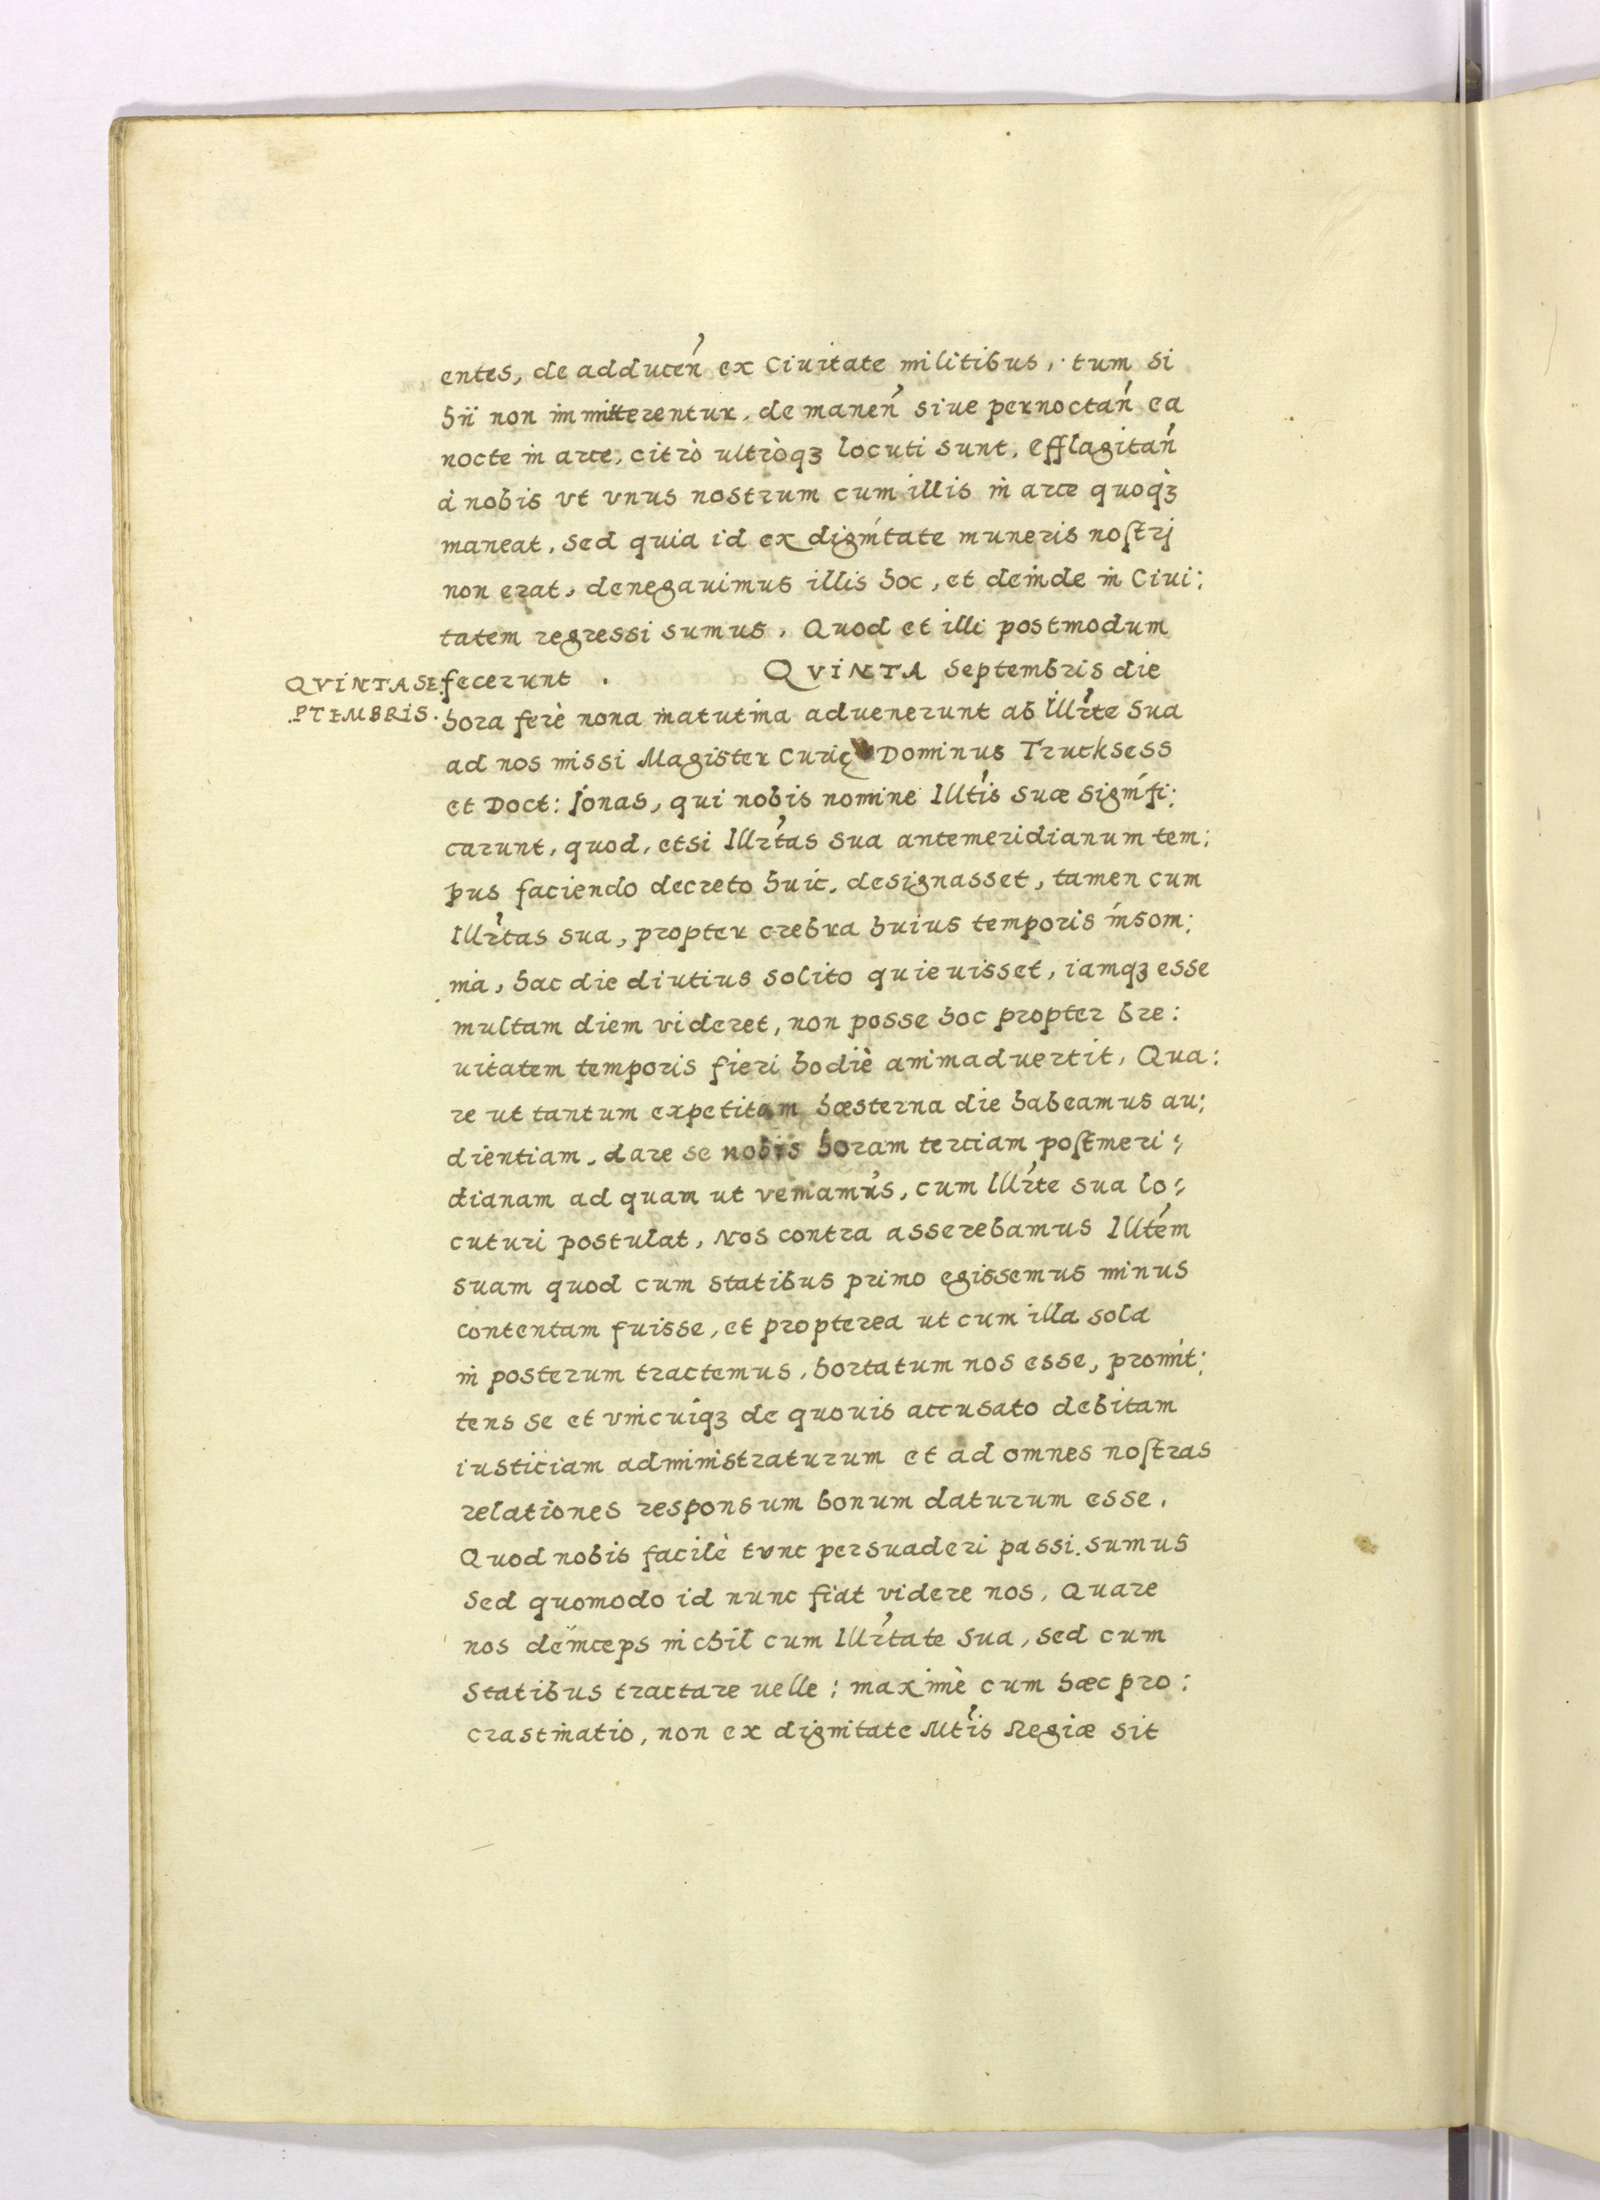 entes, de adducen̉ ex Ciuitate militibus, tum si
hii non immitterentur, de manen̉ siue pernoctan̉ ea
nocte in arce, citrò ultròqꝫ locuti sunt, Efflagitan̉
à nobis vt vnus nostrum cum illis in arce quoqꝫ
maneat, sed quia id ex dignitate muneris noſtrj
non erat, denegauimus illis hoc, et deinde in Ciui:
tatem regressi sumus. Quod et illi postmodum
fecerunt . QVINTA Septembris die
QVINTA SE
PTEMBRIS.
hora ferè nona matutina aduenerunt ab Illr̉te Sua
ad nos missi Magister Curię Dominus Trucksess
et Doct: Jonas, qui nobis nomine Illt̉is suæ signifi:
carunt, quod, etsi Illr̉tas sua antemeridianum tem:
pus faciendo decreto huic, designasset, tamen cum
Illr̉tas sua, propter crebra huius temporis insom:
nia, hac die diutius solito quieuisset, iamqꝫ esse
multam diem videret, non posse hoc propter bre:
uitatem temporis fieri hodiè animaduertit, Qua:
re ut tantum expetitam hæsterna die habeamus au:
dientiam, dare se nobis horam terciam poſtmeri:
dianam ad quam ut veniamus, cum Illr̉te sua lo:
cuturi postulat, Nos contra asserebamus Illt̉em
suam quod cum statibus primo egissemus minus
contentam fuisse, et propterea ut cum illa sola
in posterum tractemus, hortatum nos esse, promit:
tens se et vnicuiqꝫ de quouis accusato debitam
iusticiam administraturum et ad omnes noſtras
relationes responsum bonum daturum esse.
Quod nobis facilè tunc persuaderi passi sumus
Sed quomodo id nunc fiat videre nos, Quare
nos deinceps nichil cum Illr̉tate Sua, sed cum
Statibus tractare uelle: maximè cum hæc pro:
crastinatio, non ex dignitate Mt̉is Regiæ sit